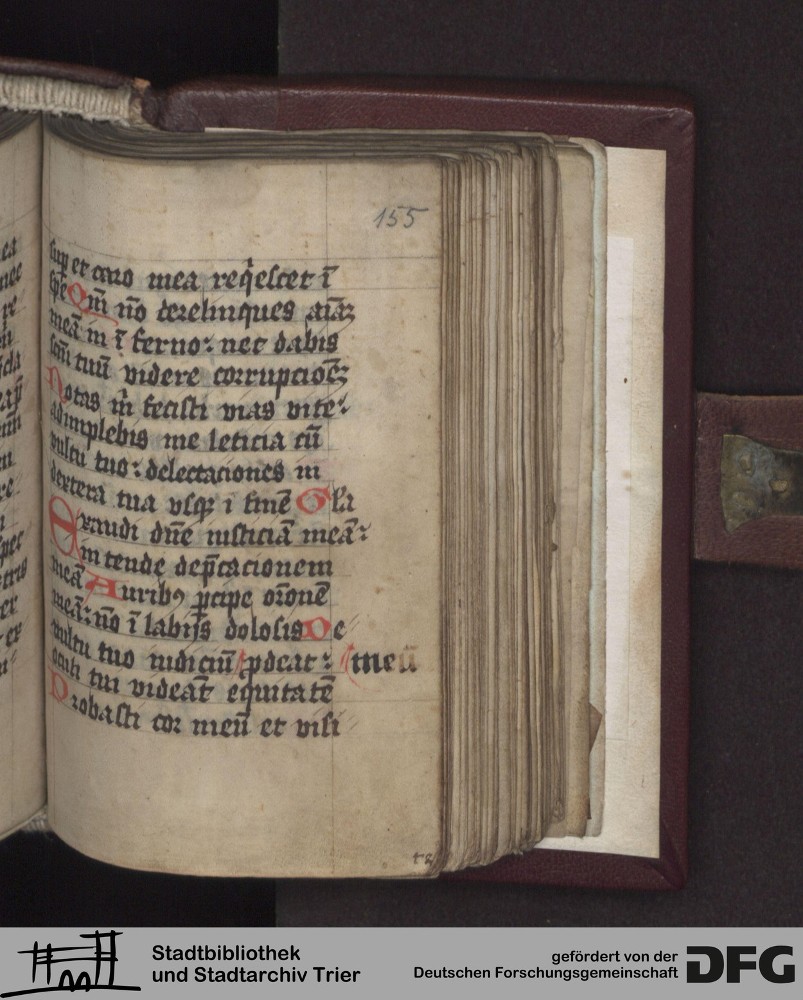 155
sup et caro mea reqͥescet ī
spe Qm̄ nō derelinques aīaꝫ
meā in īferno: nec dabis
scm̄ tuū videre corrupcioēꝫ
Notas m̄ fecisti vias vite:
adimplebis me leticia cū
vultu tuo: delectaciones in
dextera tua vsqꝫ ī finē Gla
Exaudi dn̄e iusticiā meā:
intende dep̄cacionem
meā Auribꝯ ꝑcipe orōnē
meā: nō ī labijs dolosis De
vultu tuo iudiciū ꝓdeat: meū
oculi tui videāt equitatē
Probasti cor meū et visi
Stadtbibliothek
und Stadtarchiv Trier
gefördert von der
Deutschen Forschungsgemeinschaft
DFG